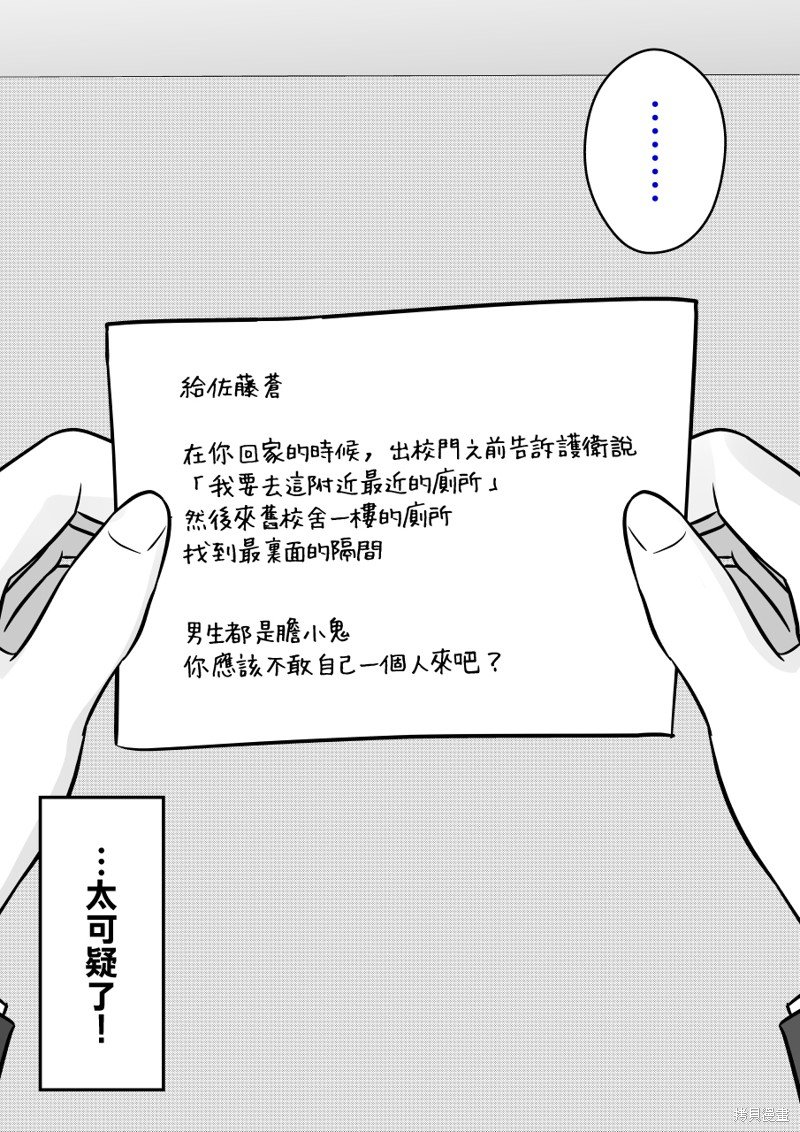 ………
給佐藤蒼
在你回家的時候，出校門之前告訴護衛說
「我要去這附近最近的廁所」
然後來舊校舍一樓的廁所
找到最裏面的隔間
男生都是膽小鬼
你應該不敢自己一個人來吧？
…太可疑了！
拷貝漫畫